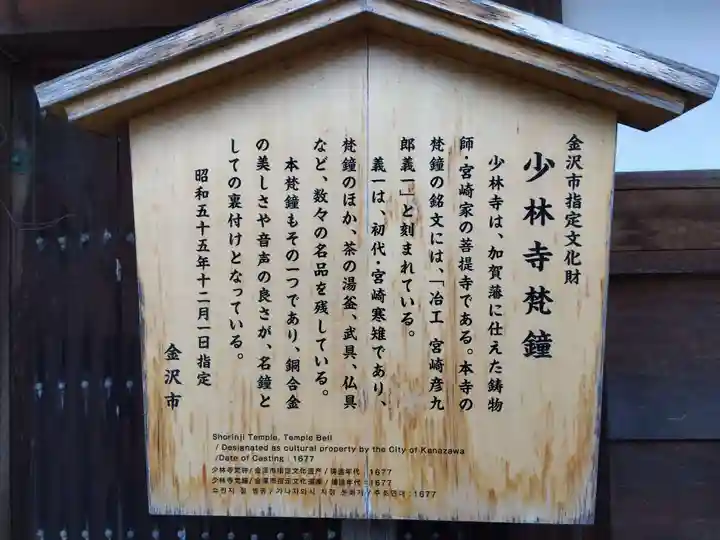 金沢市指定文化財
少林寺梵鐘
少林寺は、加賀藩に仕えた鋳物
師・宮崎家の菩提寺である。本寺の
梵鐘の銘文には、「冶工 宮崎彦九
郎義一」と刻まれている。
義一は、初代・宮崎寒雉であり、
梵鐘のほか、茶の湯釜、武具、仏具
など、数々の名品を残している。
本梵鐘もその一つであり、銅合金
の美しさや音声の良さが、名鐘と
しての裏付けとなっている。
昭和五十五年十二月一日指定
金沢市
Shorinji Temple, Temple Bell
/ Designated as cultural property by the City of Kanazawa
/Date of Casting : 1677
少林寺梵钟/金泽市指定文化遗产/铸造年代:1677
少林寺梵鐘/金澤市指定文化遺產/鑄造年代:1677
쇼린지 절 범종/가나자와시 지정 문화재/주조연대:1677